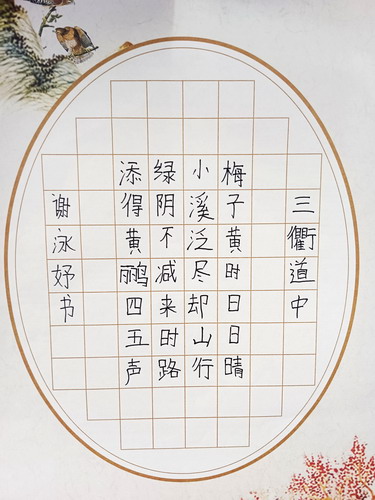 三衢道中
梅子黄时日日晴
小溪泛尽却山行
绿阴不减来时路
添得黄鹂四五声
谢泳妤书